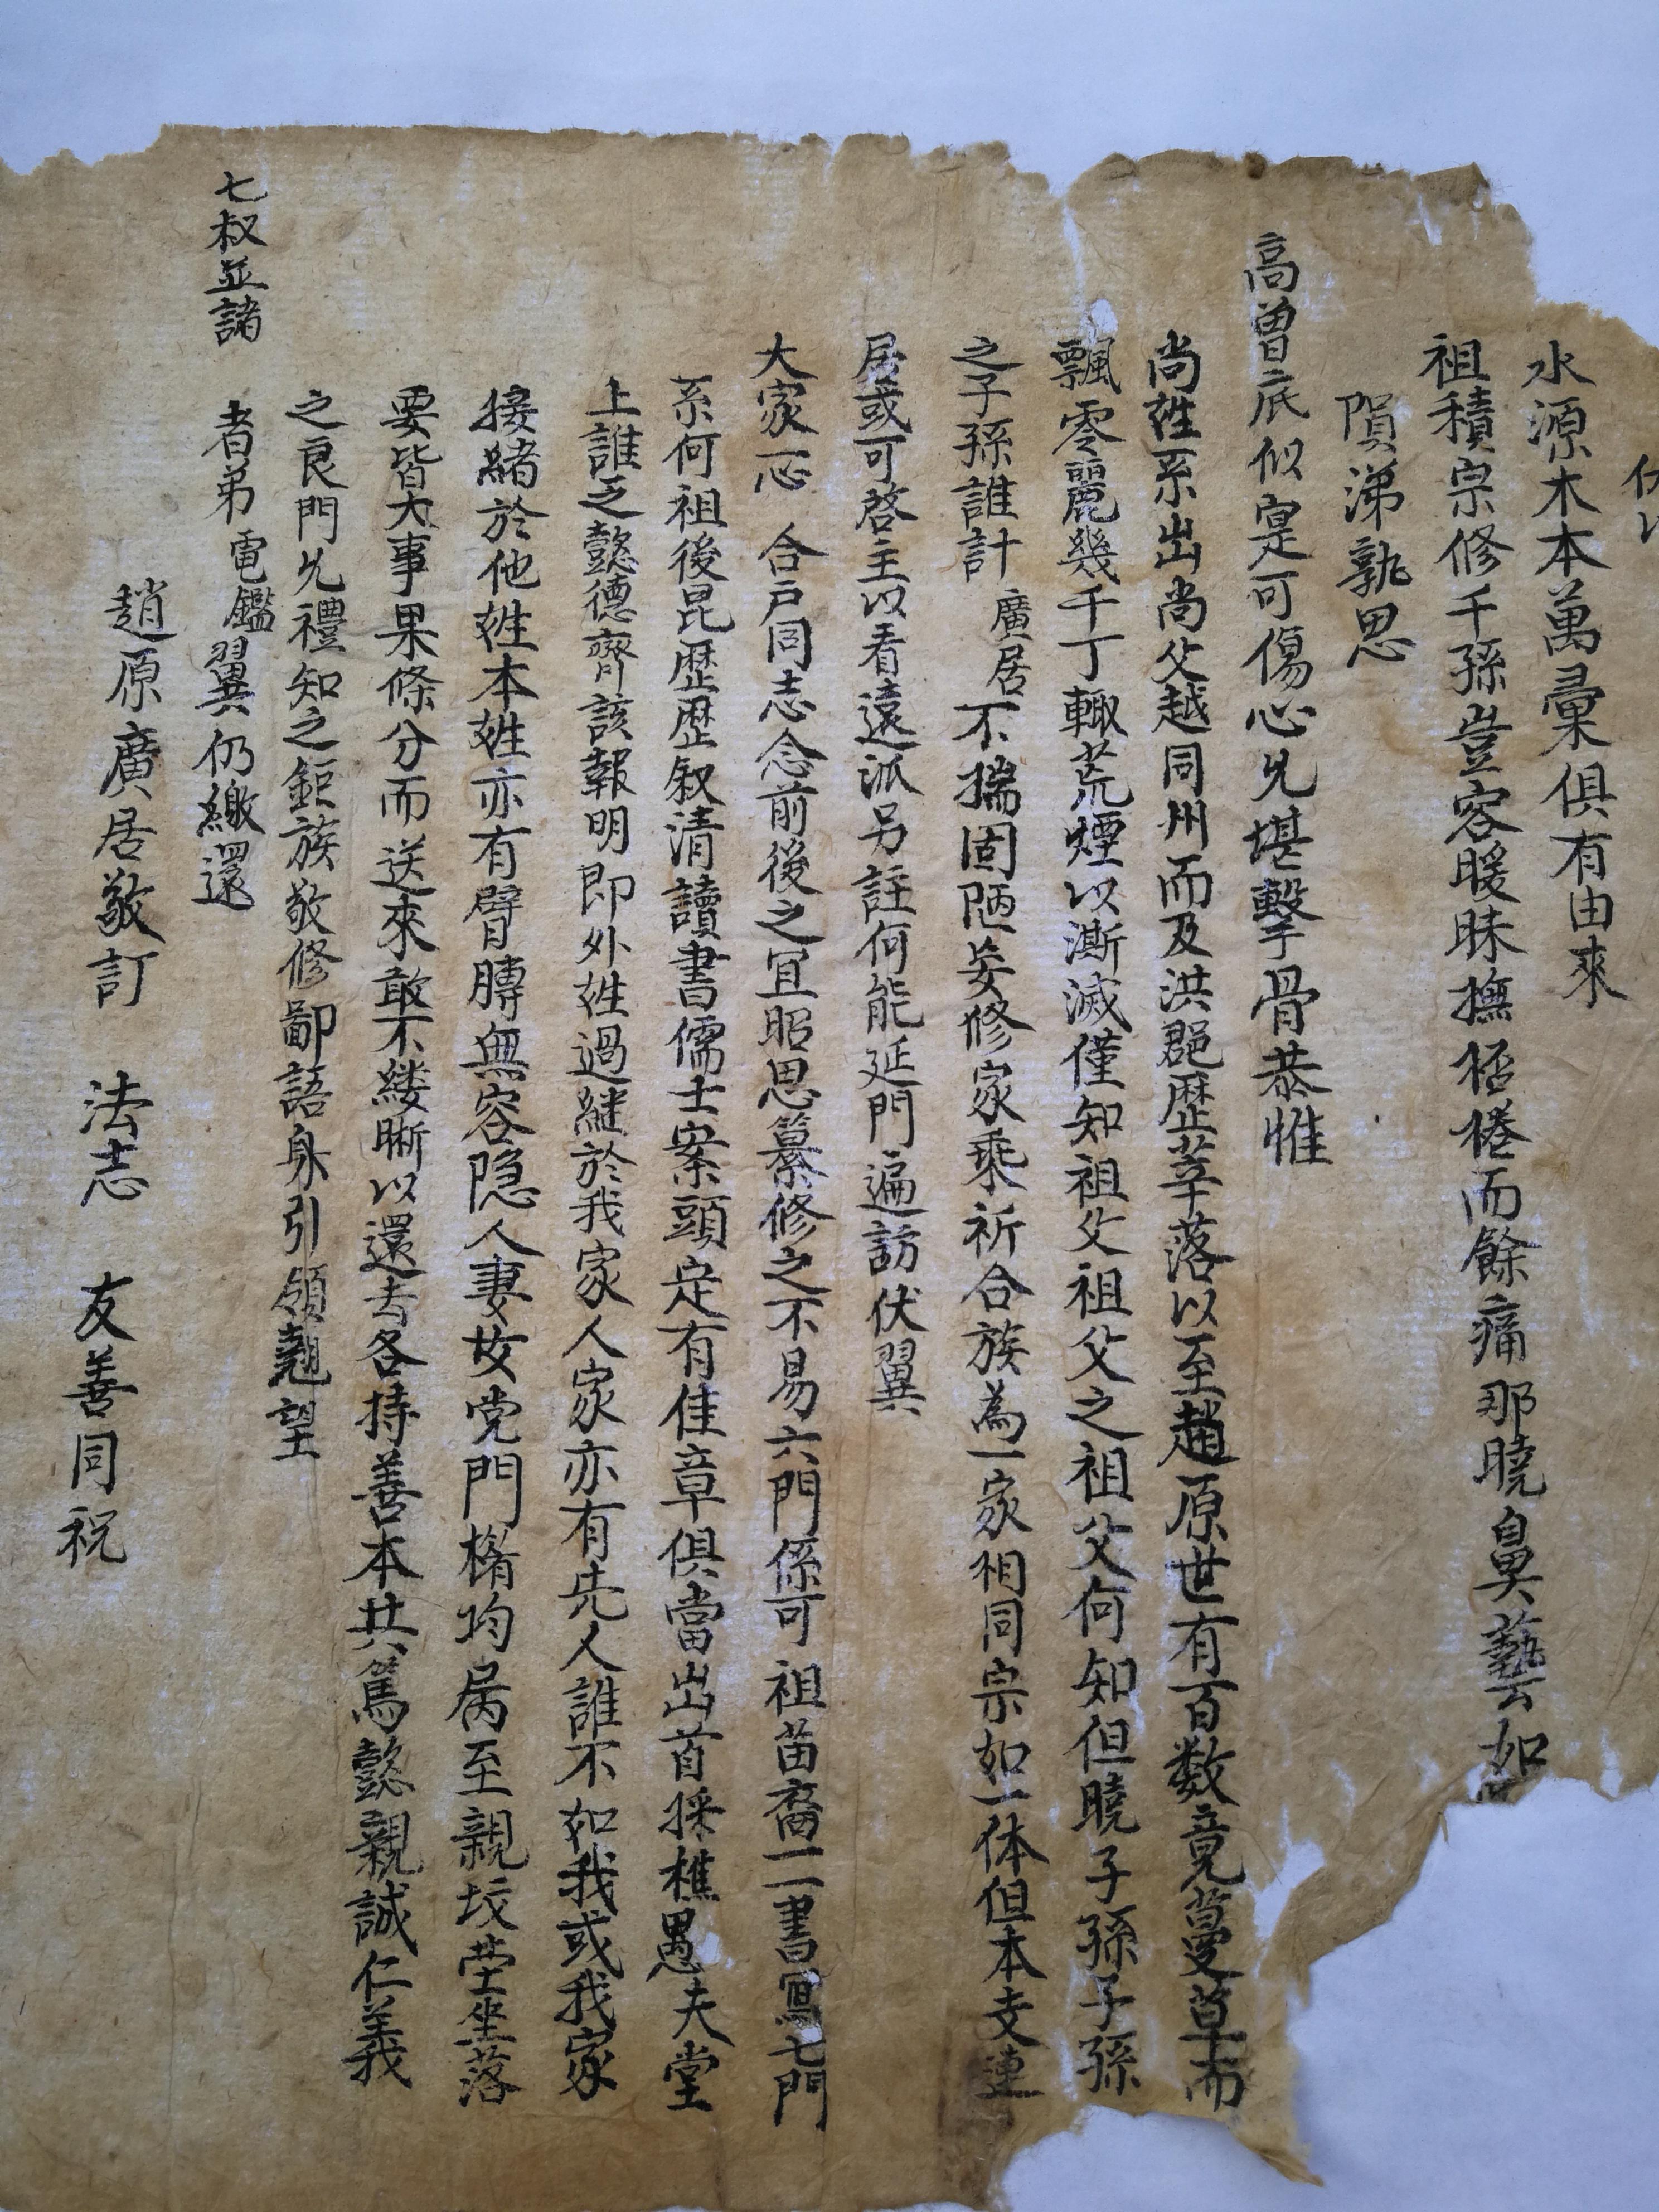 水源木本萬彙俱有由來
祖積宗修千孫豈容暧昧撫 棬而餘痛那曉臭藝如
隕涕孰思
高曾底似寔可傷心尤堪擊骨恭惟
尚姓系出尚父越同州而及洪郡歷莘落以至趙原世有百数竟蔓草而
飄零麗幾千丁輙荒煙以澌滅僅知祖父祖父之祖父何知但曉子孫子孫
之子孫誰計 廣居不揣固陋妄修家乘祈合族為一家相同宗如一体但本支連
居或可啓主以看遠派另註何能延門遍訪伏翼
大家一心 合戶同志念前後之宜昭思纂修之不易六門係可祖苗裔一一書寫七門
系何祖後昆歷歷叙清讀書儒士案頭定有佳章俱當出首採樵愚夫堂
上誰乏懿德齊該報明即外姓過継於我家人家亦有先人誰不如我或我家
接緒於他姓本姓亦有臂膊無容隐人妻女党門楣均属至親坟茔坐落
要皆大事果條分而送來敢不縷晰以還去各持善本共篤懿親誠仁義
之良門尤禮知之鉅族敬修鄙語身引領翹望
七叔並諸 者弟電鑑翼仍繳還
趙原廣居敬訂 法志 友善同祝